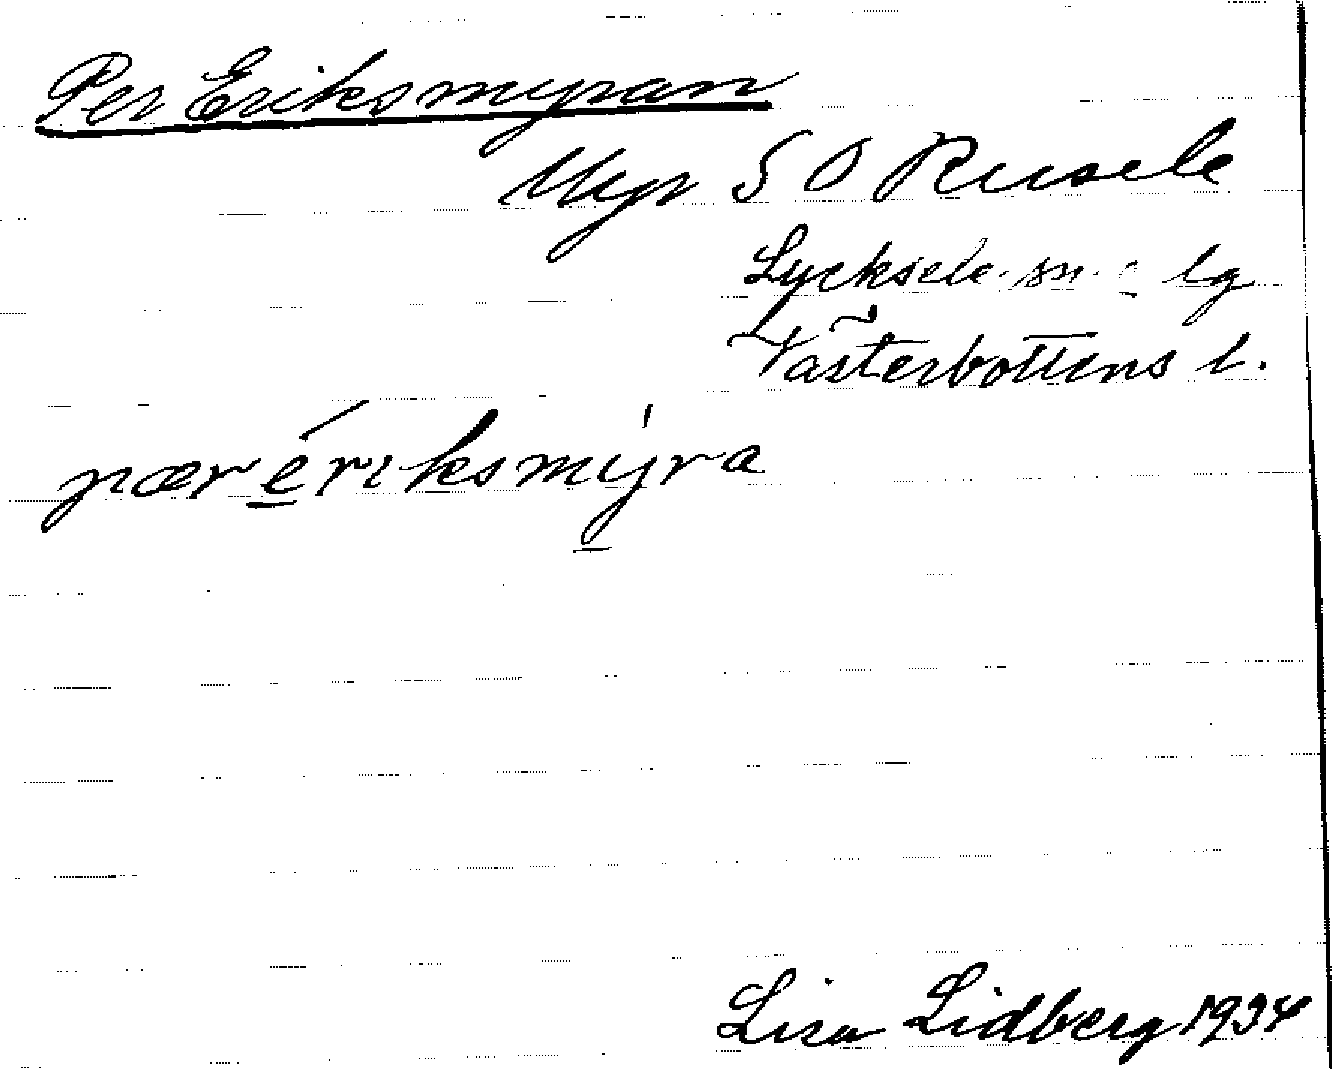 Per Eriksmyran
Myr S O Rusele
Lycksele sn. o lg
Västerbottens l.
pærériksmýra
Lisa Lidberg 1934